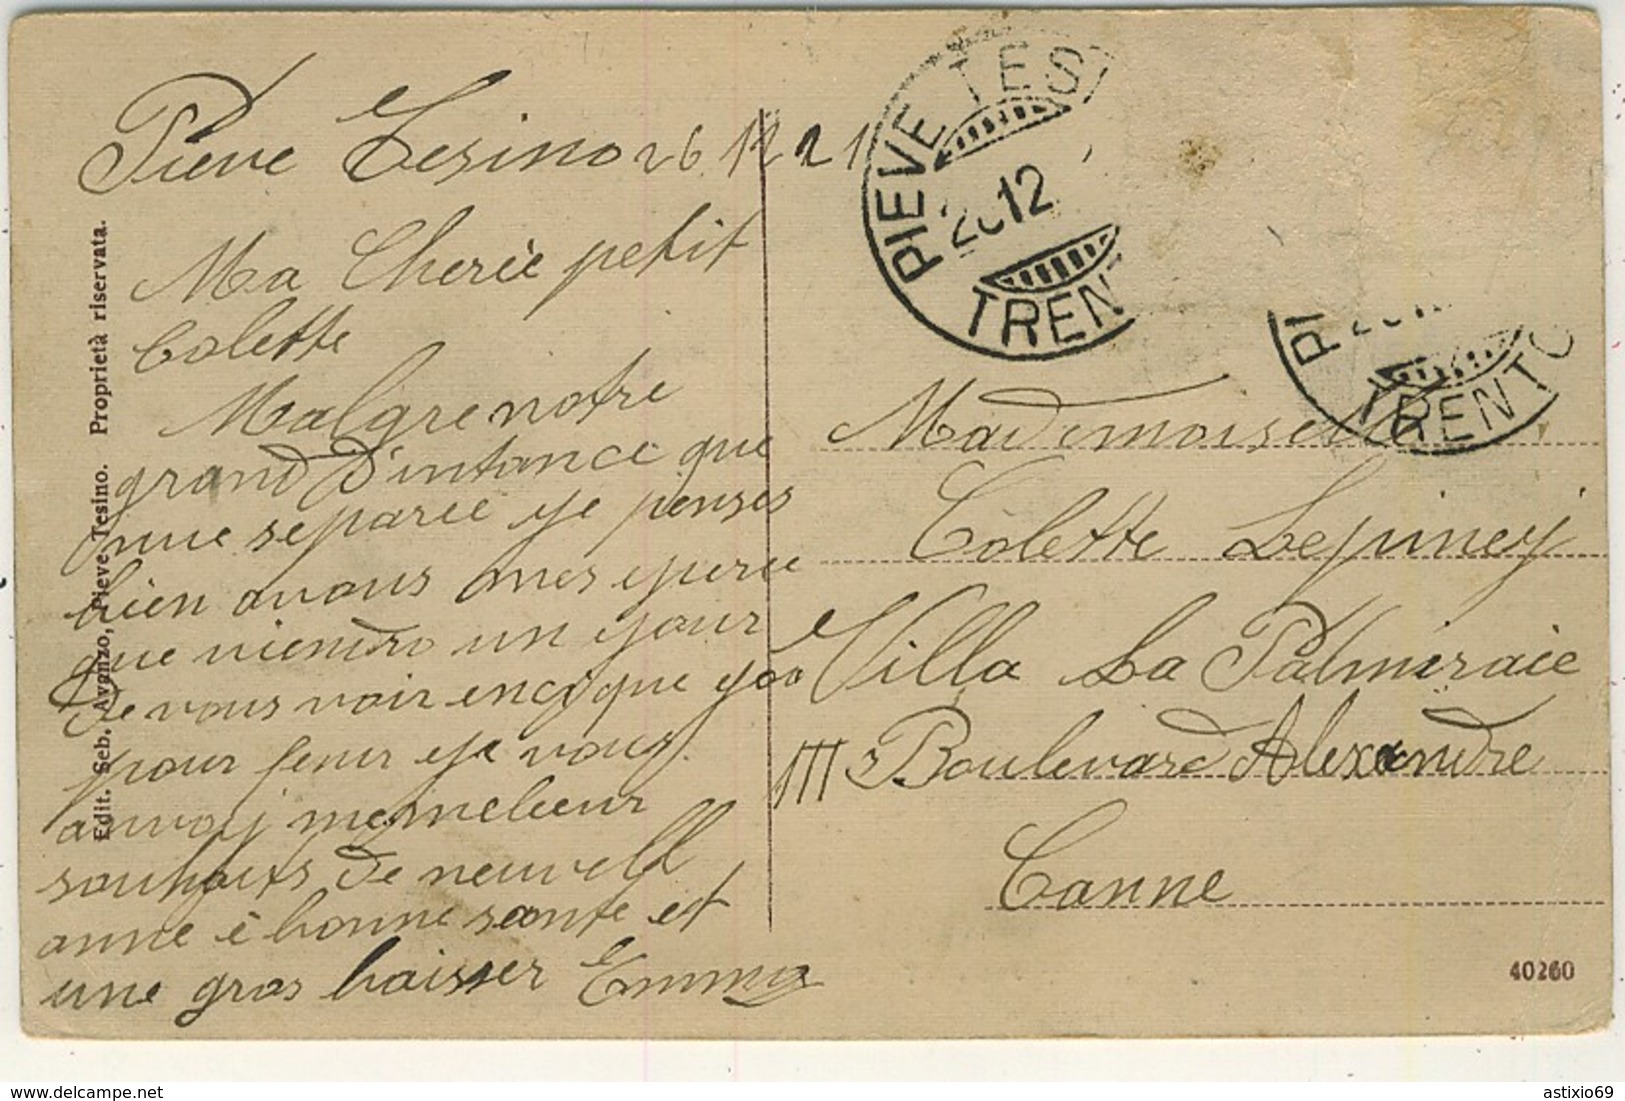 Pieve Tesino 26 12 21
Ma Cherie petit
Colette
Malgre notre
grand d'intance que
nue separee ye penses
bien a vous mes yperee
que viendro un your
de vous voir encor que
pour fenir ye vous
anvoij
souhaits de neuvell
anne è bonne sante et
une gros baisser Emma
Edit. Seb. Avanzo, Pieve Tesino. Proprietà riservata.
PIEVE TES
12
TREN
PI
TRENTO
Mademoiselle
Colette Lepiney
Villa La Palmeraie
Boulevard Alexandre
Canne
40260
astixio69